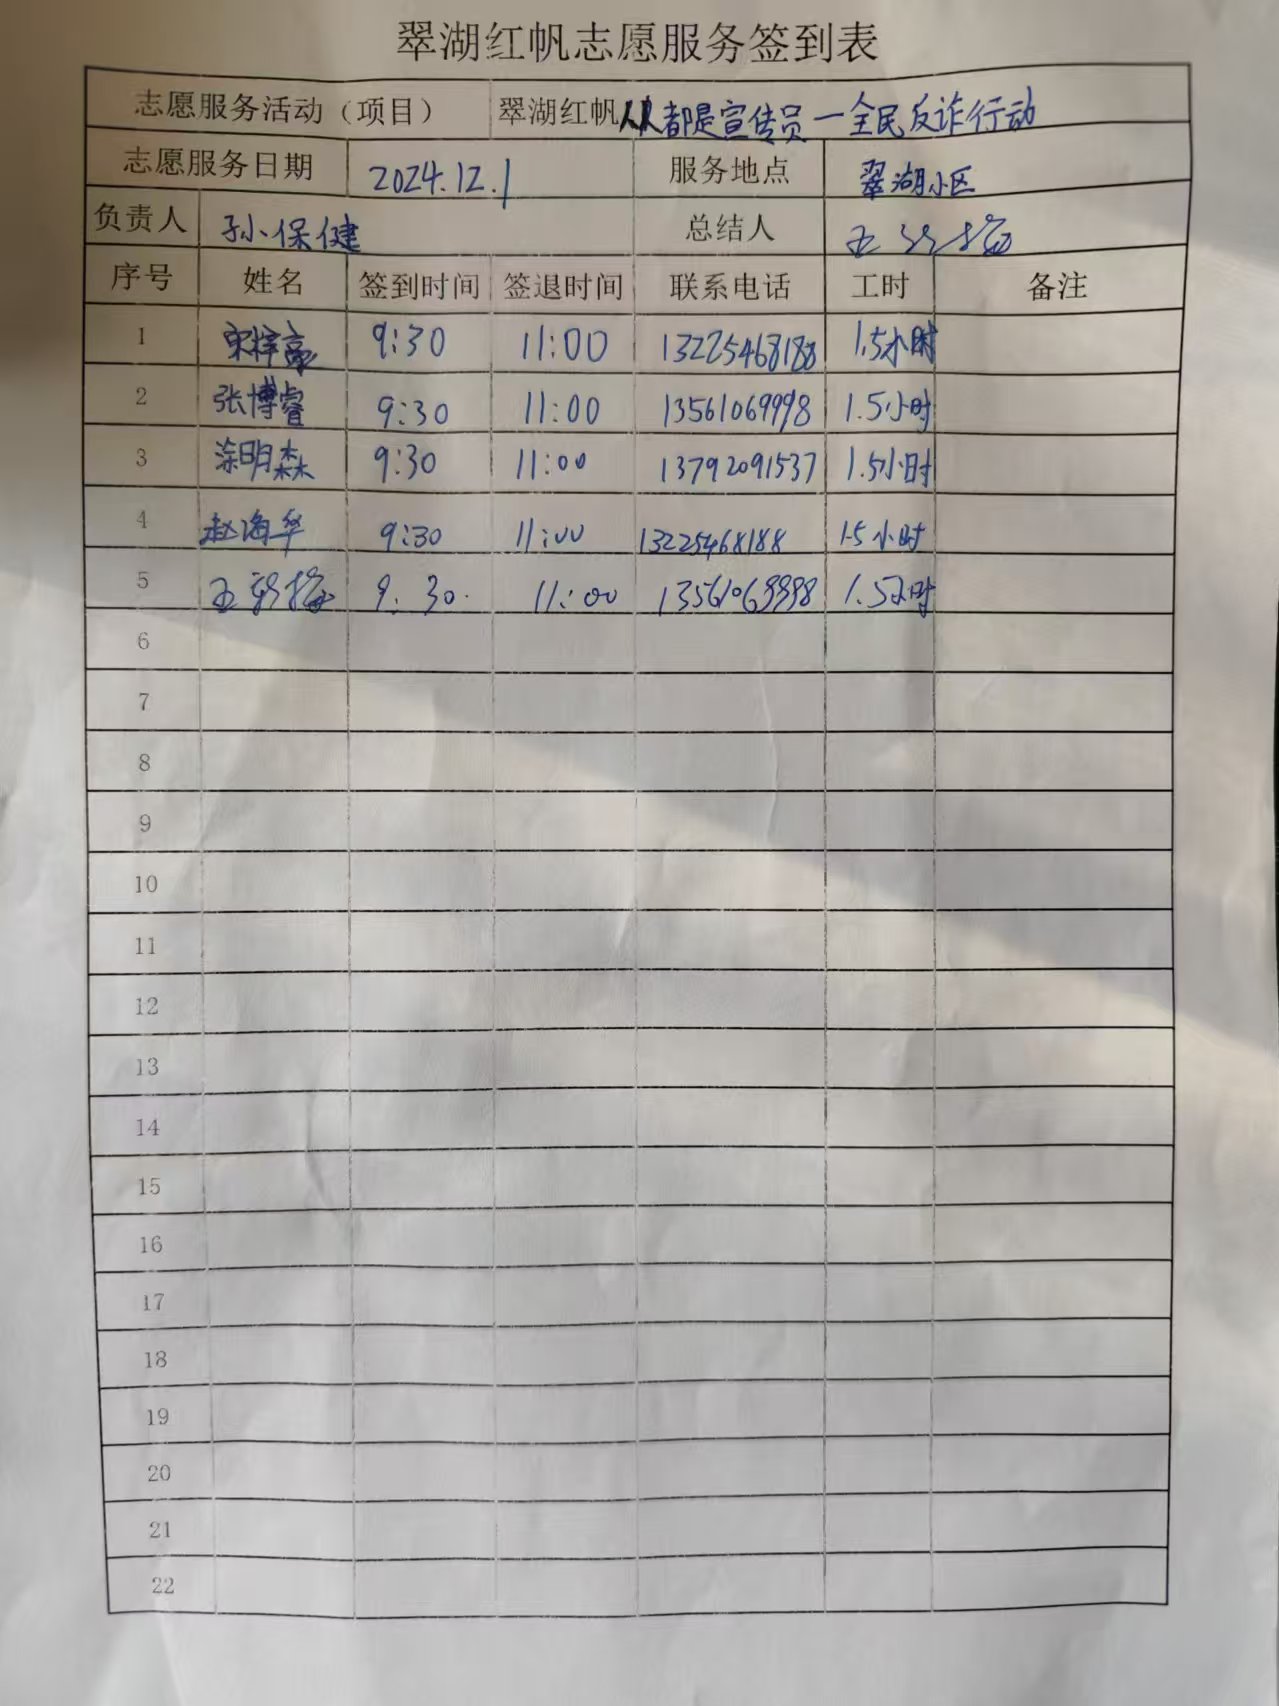 翠湖红帆志愿服务签到表
志愿服务活动（项目） 翠湖红帆人人都是宣传员—全民反诈行动
志愿服务日期 2024.12.1 服务地点 翠湖小区
负责人 孙保健 总结人
序号 姓名 签到时间 签退时间 联系电话 工时 备注
1 宋梓豪 9:30 11:00 13225468188 1.5小时
2 张博睿 9:30 11:00 13561069998 1.5小时
3 明森 9:30 11:00 13792091537 1.5小时
4 赵海华 9:30 11:00 13225468188 1.5小时
5 9:30 11:00 13561069998 1.5小时
6
7
8
9
10
11
12
13
14
15
16
17
18
19
20
21
22